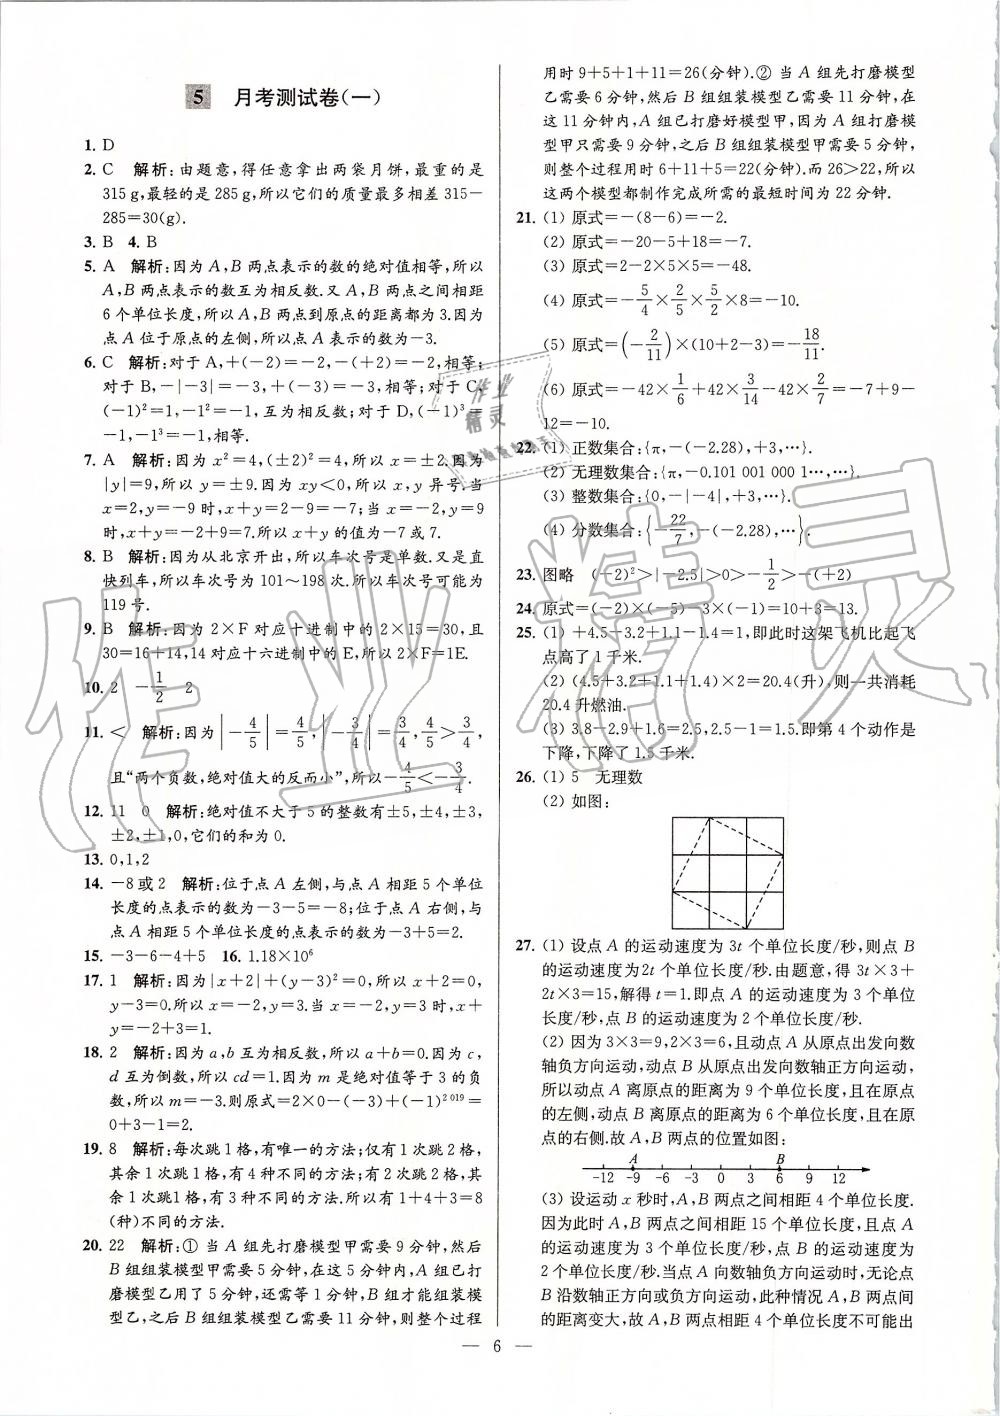 5 月考测试卷(一)
1. D
2. C 解析:由题意,得任意拿出两袋月饼,最重的是
315 g,最轻的是 285 g,所以它们的质量最多相差 315−
285=30(g).
3. B 4. B
5. A 解析:因为 A,B 两点表示的数的绝对值相等,所以
A,B 两点表示的数互为相反数.又 A,B 两点之间相距
6 个单位长度,所以 A,B 两点到原点的距离都为 3.因为
点 A 位于原点的左侧,所以点 A 表示的数为−3.
6. C 解析:对于 A,+(−2)=−2,−(+2)=−2,相等;
对于 B,−|−3|=−3,+(−3)=−3,相等;对于 C,
(−1)²=1,−1²=−1,互为相反数;对于 D,(−1)³=
−1,−1³=−1,相等.
7. A 解析:因为 x²=4,(±2)²=4,所以 x=±2.因为
|y|=9,所以 y=±9.因为 xy<0,所以 x,y 异号.当
x=2,y=−9 时,x+y=2−9=−7;当 x=−2,y=9
时,x+y=−2+9=7.所以 x+y 的值为−7 或 7.
8. B 解析:因为从北京开出,所以车次号是单数.又是直
快列车,所以车次号为 101～198 次.所以车次号可能为
119 号.
9. B 解析:因为 2×F 对应十进制中的 2×15=30,且
30=16+14,14 对应十六进制中的 E,所以 2×F=1E.
10. 2 −1/2 2
11. < 解析:因为|−4/5|=4/5,|−3/4|=3/4,4/5>3/4,
且“两个负数,绝对值大的反而小”,所以−4/5<−3/4.
12. 11 0 解析:绝对值不大于 5 的整数有±5,±4,±3,
±2,±1,0,它们的和为 0.
13. 0,1,2
14. −8 或 2 解析:位于点 A 左侧,与点 A 相距 5 个单位
长度的点表示的数为−3−5=−8;位于点 A 右侧,与
点 A 相距 5 个单位长度的点表示的数为−3+5=2.
15. −3−6−4+5 16. 1.18×10⁶
17. 1 解析:因为|x+2|+(y−3)²=0,所以 x+2=0,
y−3=0.所以 x=−2,y=3.当 x=−2,y=3 时,x+
y=−2+3=1.
18. 2 解析:因为 a,b 互为相反数,所以 a+b=0.因为 c,
d 互为倒数,所以 cd=1.因为 m 是绝对值等于 3 的负
数,所以 m=−3.则原式=2×0−(−3)+(−1)²⁰¹⁹=
0+3−1=2.
19. 8 解析:每次跳 1 格,有唯一的方法;仅有 1 次跳 2 格,
其余 1 次跳 1 格,有 4 种不同的方法;有 2 次跳 2 格,其
余 1 次跳1格,有 3 种不同的方法.所以有 1+4+3=8
(种)不同的方法.
20. 22 解析:① 当 A 组先打磨模型甲需要 9 分钟,然后
B 组组装模型甲需要 5 分钟,在这 5 分钟内,A 组已打
磨模型乙用了 5 分钟,还需等 1 分钟,B 组才能组装模
型乙,之后 B 组组装模型乙需要 11 分钟,则整个过程
用时 9+5+1+11=26(分钟).② 当 A 组先打磨模型
乙需要 6 分钟,然后 B 组组装模型乙需要 11 分钟,在
这 11 分钟内,A 组已打磨好模型甲,因为 A 组打磨模
型甲只需要 9 分钟,之后 B 组组装模型甲需要 5 分钟,
则整个过程用时 6+11+5=22(分钟).而 26>22,所以
这两个模型都制作完成所需的最短时间为 22 分钟.
21. (1) 原式=−(8−6)=−2.
(2) 原式=−20−5+18=−7.
(3) 原式=2−2×5×5=−48.
(4) 原式=−5/4×2/5×5/2×8=−10.
(5) 原式=(−2/11)×(10+2−3)=−18/11.
(6) 原式=−42×1/6+42×3/14−42×2/7=−7+9−
12=−10.
22. (1) 正数集合:{π,−(−2.28),+3,…}.
(2) 无理数集合:{π,−0.101 001 000 1…,…}.
(3) 整数集合:{0,−|−4|,+3,…}.
(4) 分数集合:{−22/7,−(−2.28),…}.
23. 图略 (−2)²>|−2.5|>0>−1/2>−(+2)
24. 原式=(−2)×(−5)−3×(−1)=10+3=13.
25. (1) +4.5−3.2+1.1−1.4=1,即此时这架飞机比起飞
点高了 1 千米.
(2) (4.5+3.2+1.1+1.4)×2=20.4(升),则一共消耗
20.4 升燃油.
(3) 3.8−2.9+1.6=2.5,2.5−1=1.5.即第 4 个动作是
下降,下降了 1.5 千米.
26. (1) 5 无理数
(2) 如图:
27. (1) 设点 A 的运动速度为 3t 个单位长度/秒,则点 B
的运动速度为2t 个单位长度/秒.由题意,得 3t×3+
2t×3=15,解得 t=1.即点 A 的运动速度为 3 个单位
长度/秒,点 B 的运动速度为 2 个单位长度/秒.
(2) 因为 3×3=9,2×3=6,且动点 A 从原点出发向数
轴负方向运动,动点 B 从原点出发向数轴正方向运动,
所以动点 A 离原点的距离为 9 个单位长度,且在原点
的左侧,动点 B 离原点的距离为 6 个单位长度,且在原
点的右侧.故 A,B 两点的位置如图:
A B
−12 −9 −6 −3 0 3 6 9 12
(3) 设运动 x 秒时,A,B 两点之间相距 4 个单位长度.
因为此时 A,B 两点之间相距 15 个单位长度,且点 A
的运动速度为 3 个单位长度/秒,点 B 的运动速度为
2 个单位长度/秒.当点 A 向数轴负方向运动时,无论点
B 沿数轴正方向或负方向运动,此种情况 A,B 两点间
的距离变大,故 A,B 两点相距 4 个单位长度不可能出
— 6 —
作业精灵
作业
精灵